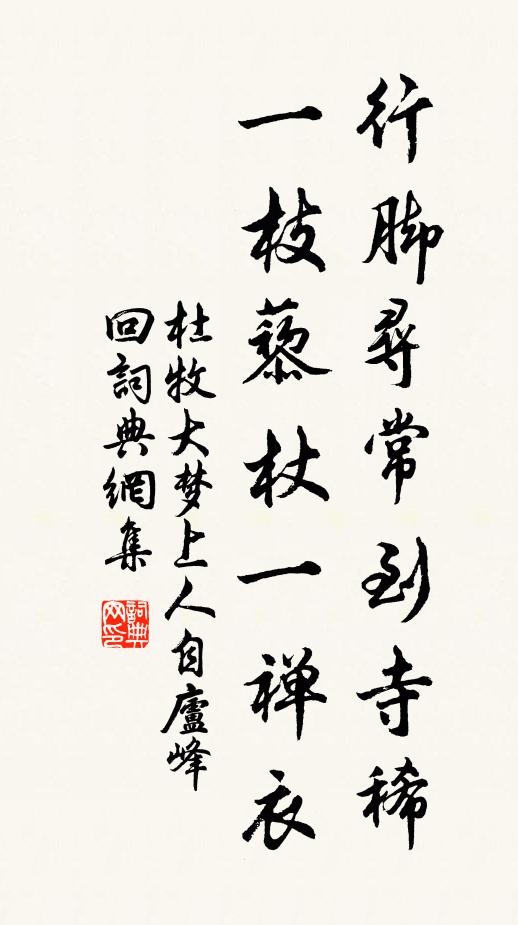 行脚尋常到寺稀
一枝藜杖一禅衣
杜牧大梦上人自廬峰
回詞典網集
詞典网印